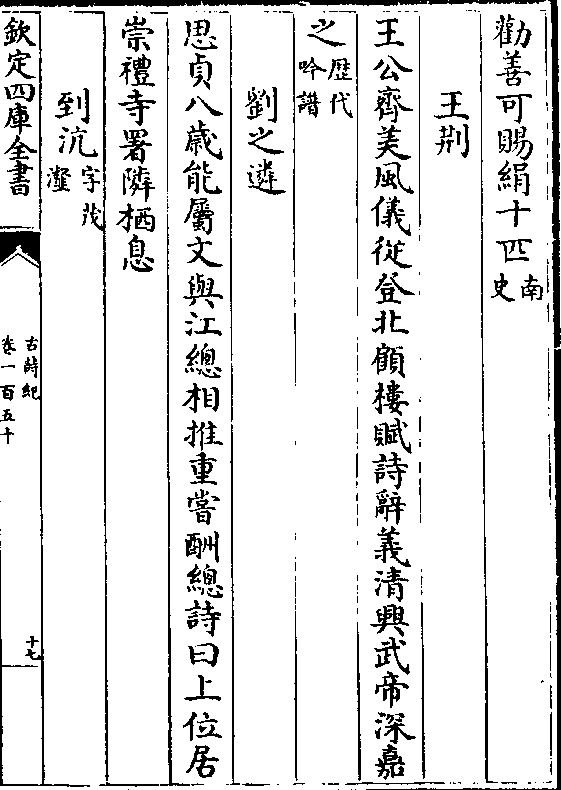 勸善可賜絹十匹南史
王荆
王公齊美風儀從登北顧樓賦詩辭義清興武帝深嘉
之歴代吟譜
劉之遴
思貞八歲能屬文與江總相推重嘗酬總詩曰上位居
崇禮寺署隣栖息
到沆字茂瀣
欽定四庫全書
古詩紀
卷一百五十
十七